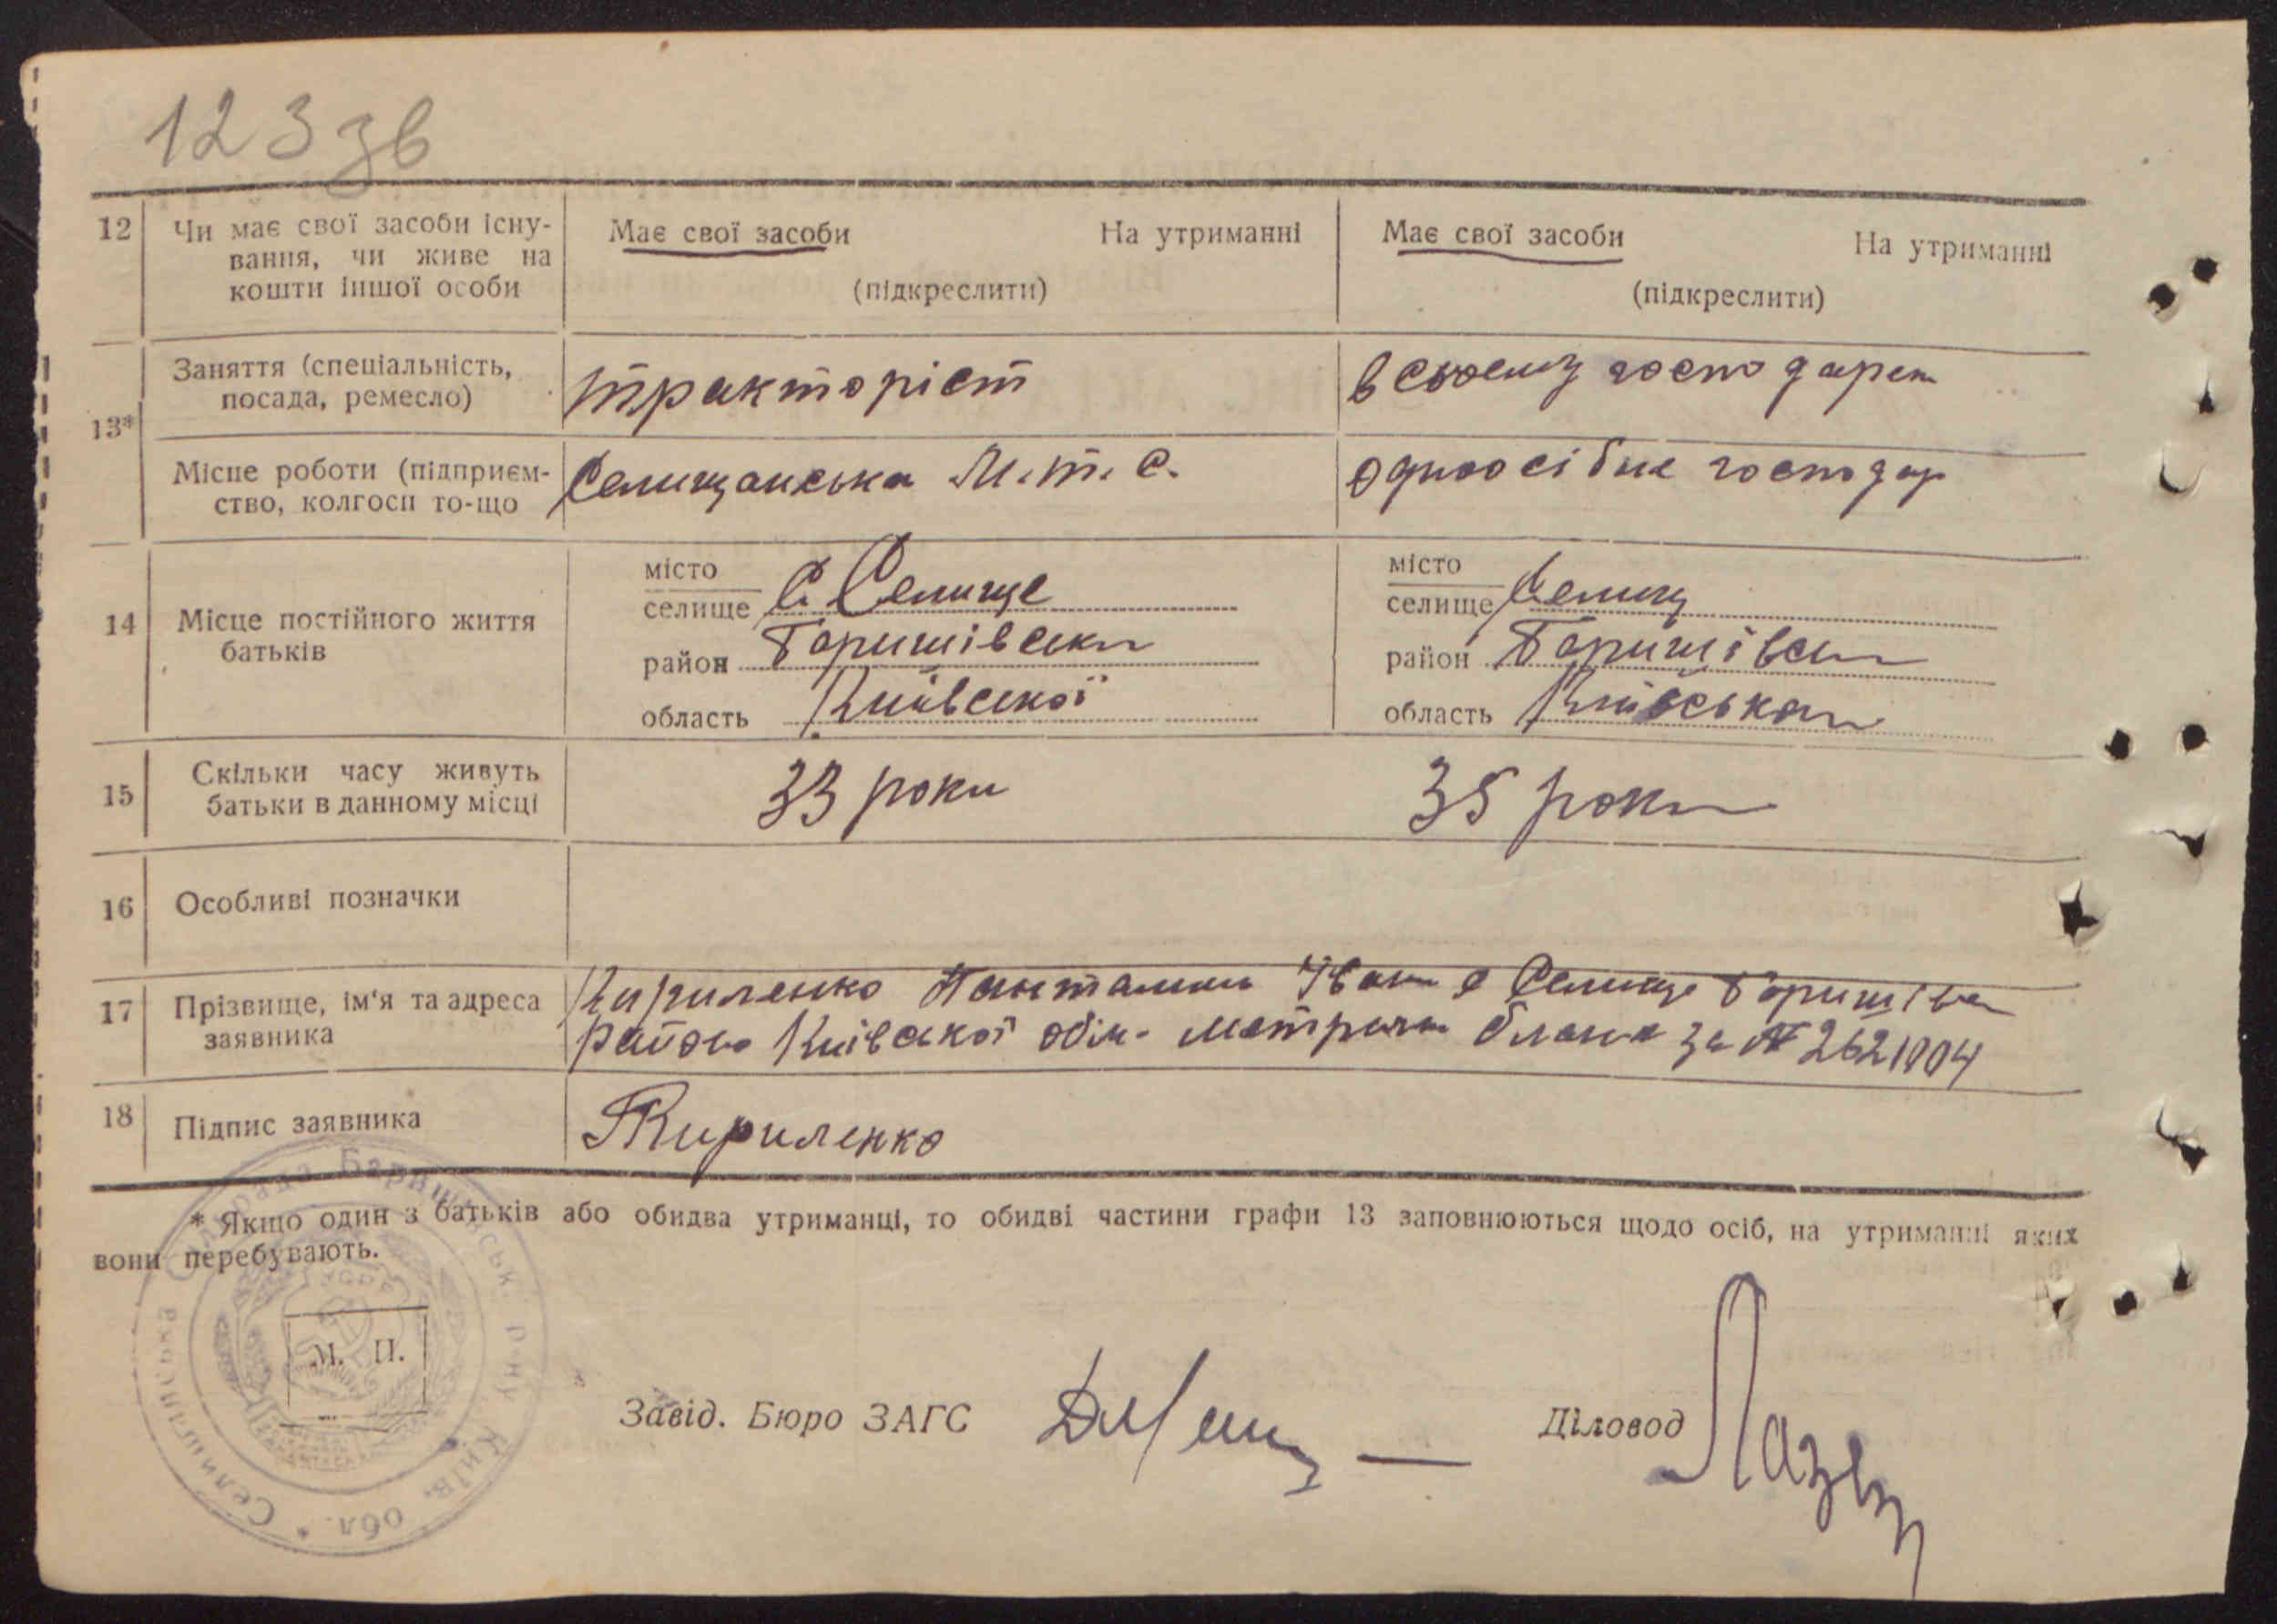 123 зв
12 Чи має свої засоби існу- Має свої засоби На утриманні Має свої засоби На утриманні
вання, чи живе на
кошти іншої особи (підкреслити) (підкреслити)
13* Заняття (спеціальність, тракторіст в своєму господарст
посада, ремесло)
Місце роботи (підприєм- Селищанська М.т.С. одноосібне господар
ство, колгосп то-що
14 Місце постійного життя
батьків
місто
селище С Селище
район Баришівськ
область Київської
місто
селище Селищ
район Баришівськ
область Київська
15 Скільки часу живуть 33 роки 35 роки
батьки в данному місці
16 Особливі позначки
17 Прізвище, ім'я та адреса Кириленко Панталим Іван с Селище Баришівс
заявника району Київської обл. метрична бланк за № 2621904
18 Підпис заявника Кириленко
* Якщо один з батьків або обидва утриманці, то обидві частини графи 13 заповнюються щодо осіб, на утриманні яких
вони перебувають.
М. П.
Селищанська Сільрада Баришівськ. р-ну Київ. обл. *
УСРР
Завід. Бюро ЗАГС
Діловод